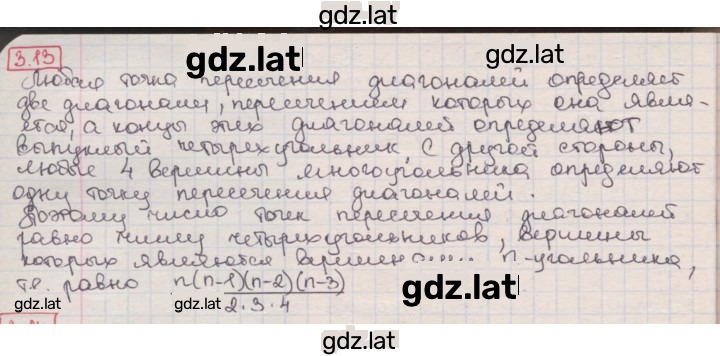 gdz.lat
3.13
gdz.lat
gdz.lat
Любая точка пересечения диагоналей определяет
две диагонали, пересечением которых она явля-
ется, а концы этих диагоналей определяют
выпуклый четырехугольник. С другой стороны,
любые 4 вершины многоугольника определяют
одну точку пересечения диагоналей.
Поэтому число точек пересечения диагоналей
равно числу четырехугольников, вершины
которых являются вершин n-угольника,
т.е. равно n(n-1)(n-2)(n-3)
2·3·4
gdz.lat
gdz.lat
gdz.lat
gdz.lat